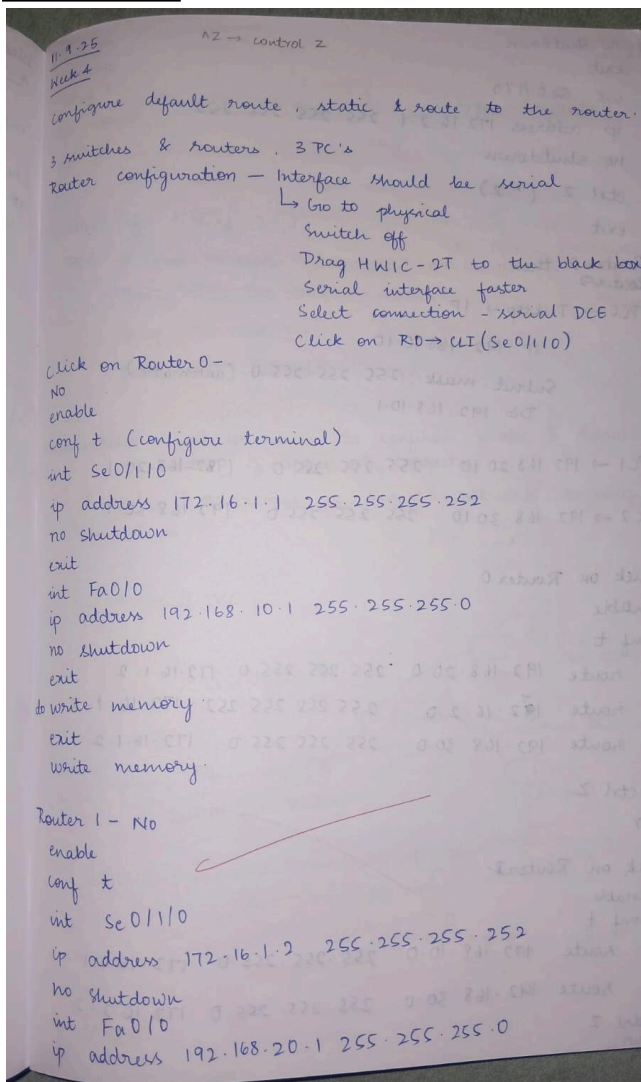 11.9.25
^Z → control Z
Week 4
configure default route, static & route to the router.
3 switches & routers. 3 PC's
Router configuration — Interface should be serial
↳ Go to physical
Switch off
Drag HWIC-2T to the black box
Serial interface faster
Select connection - serial DCE
Click on R0 → CLI (Se0/1/0)
Click on Router 0 -
NO
enable
conf t (configure terminal)
int Se0/1/0
ip address 172.16.1.1 255.255.255.252
no shutdown
exit
int Fa0/0
ip address 192.168.10.1 255.255.255.0
no shutdown
exit
do write memory
exit
write memory.
Router 1 - No
enable
conf t
int Se0/1/0
ip address 172.16.1.2 255.255.255.252
no shutdown
int Fa0/0
ip address 192.168.20.1 255.255.255.0